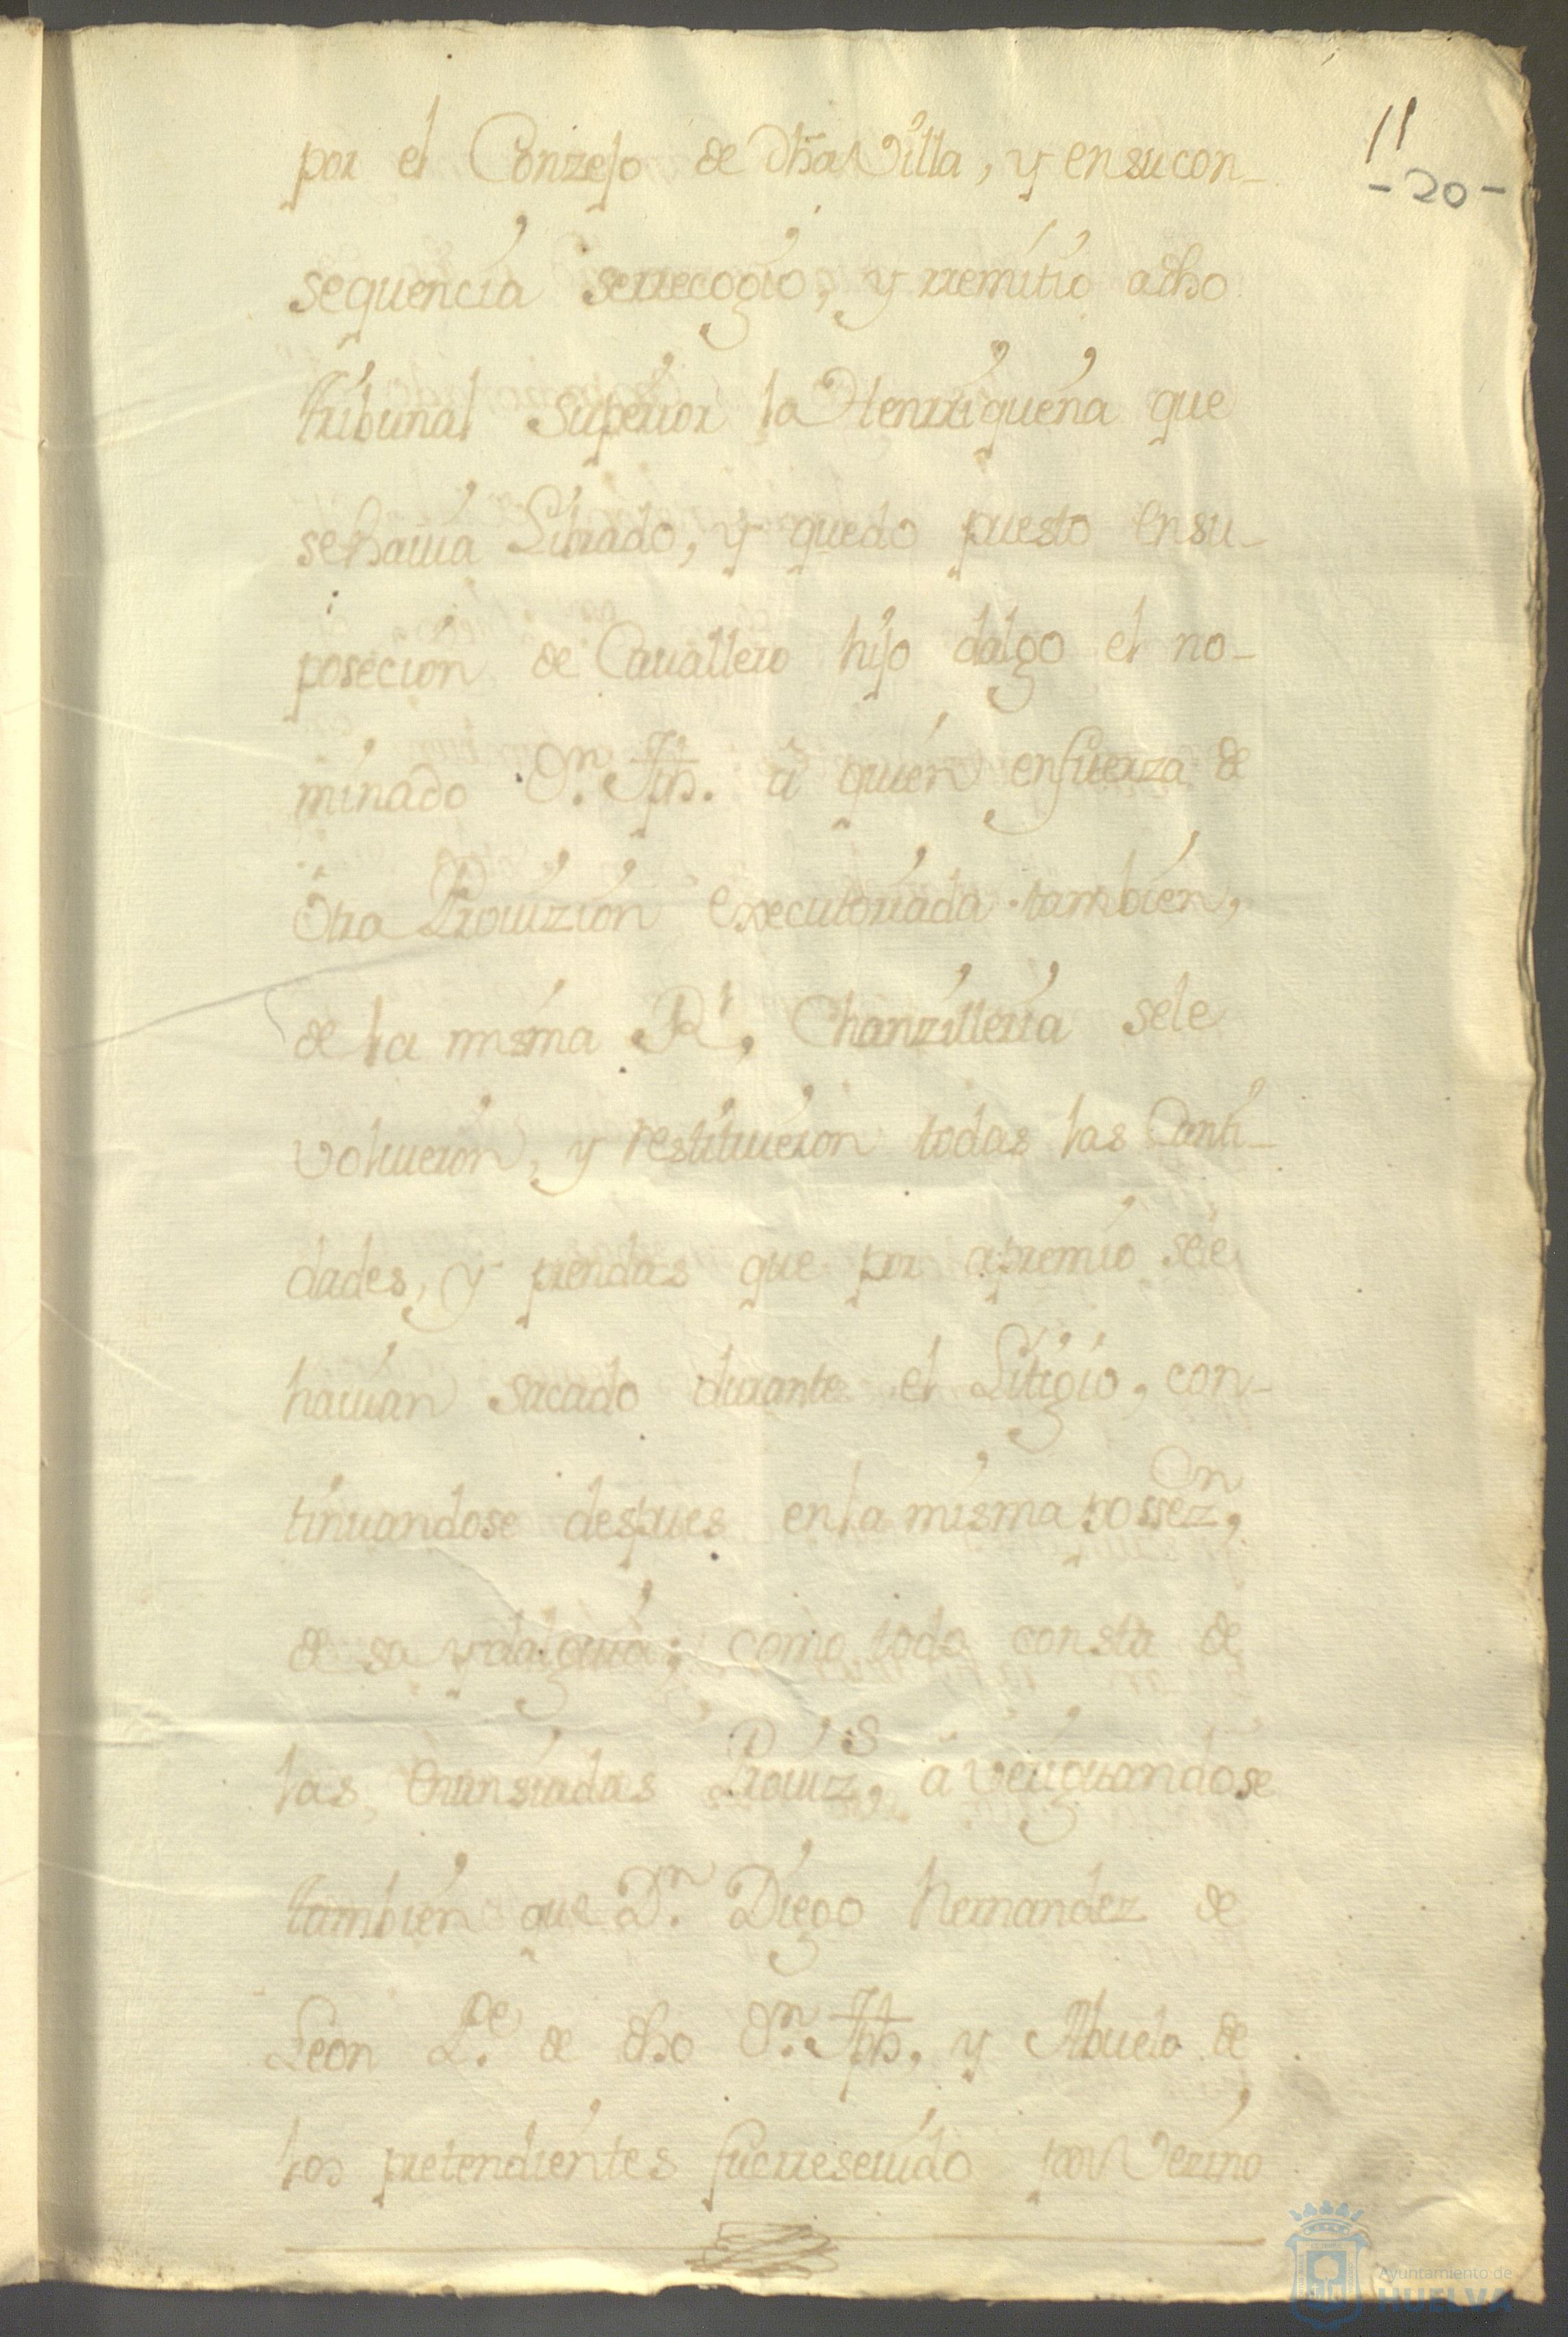 11
-20-
por el Conzejo de dha Villa, y ensucon-
sequencia serrecogio, y rremitio adho
tribunal superior la Henrriqueña que
sehavia Librado, y quedo puesto ensu-
poseción de Cavallero hijo dalgo el no-
minado Dn. Jph. a quien enfuerza de
otra Provizion executoriada tambien,
de la misma Rl, Chanzilleria sele
volvieron, y restituieron todas las Canti-
dades, y prendas que por apremio sele
havian sacado durante el Litigio, con-
tinuandose despues enla misma possezon,
de su ydalguia; como todo consta de
las, enunsiadas Provizs, averiguandose
tambien que Dn. Diego hernandez de
Leon Pe. de dho Dn. Jph. y Abuelo de
los pretendientes fuerreseuido por Vezino
Ayuntamiento de
HUELVA